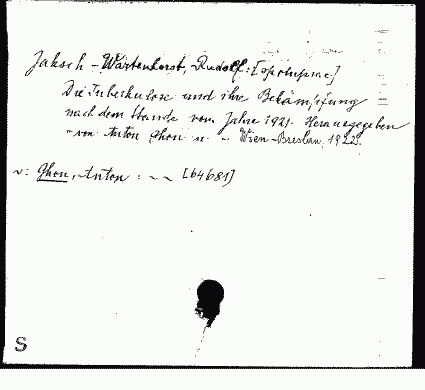 Jaksch-Wartenhorst, Rudolf:
Die Tuberkulose und ihre Bekämpfung
nach dem Stande vom Jahre 1921. Herausgegeben
von Anton Ghon u. Wien-Breslau, 1922.
v: Ghon, Anton: ~ ~ [64681]
S